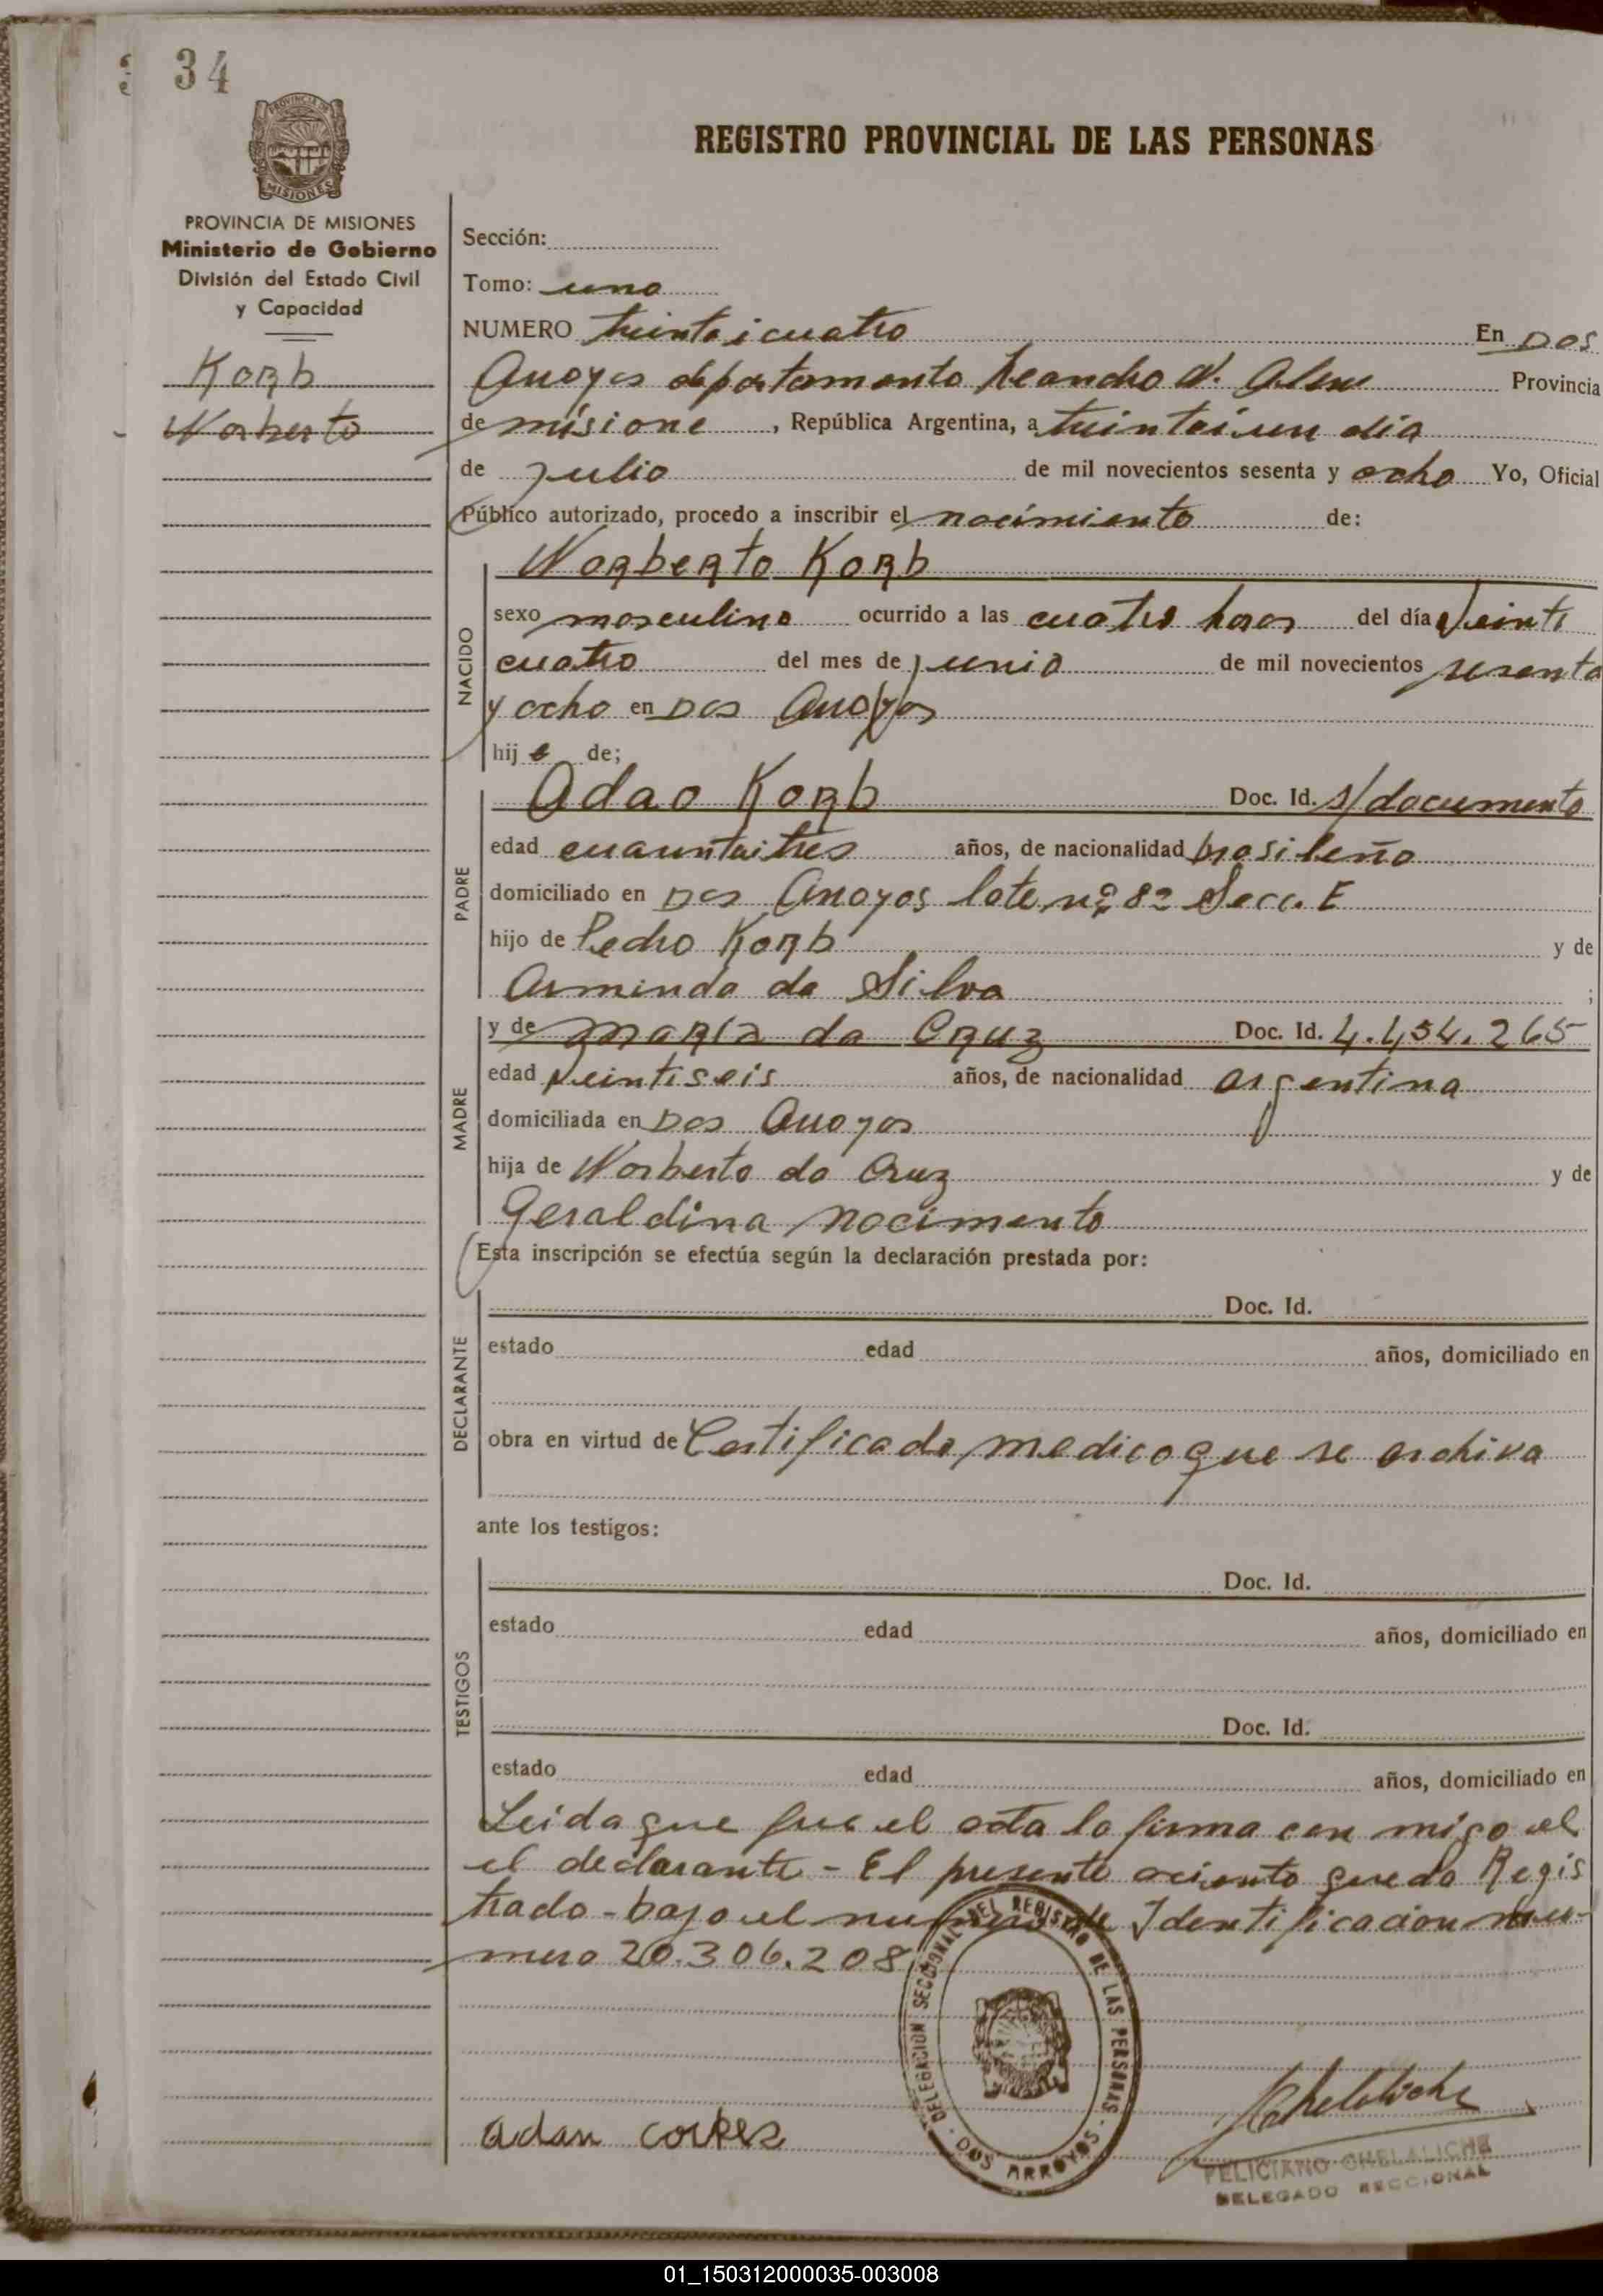 34
REGISTRO PROVINCIAL DE LAS PERSONAS
PROVINCIA DE MISIONES
MISIONES
PROVINCIA DE MISIONES
Ministerio de Gobierno
División del Estado Civil
y Capacidad
Korb
Norberto
Sección:
Tomo: uno
NUMERO treinta i cuatro En Dos
Arroyos departamento Leandro N. Alem Provincia
de misione, República Argentina, a treintaiun dia
de Julio de mil novecientos sesenta y ocho Yo, Oficial
Público autorizado, procedo a inscribir el nacimiento de:
NACIDO
Norberto Korb
sexo masculino ocurrido a las cuatro horas del día veinti
cuatro del mes de junio de mil novecientos sesenta
y ocho en Dos Arroyos
hijo de;
PADRE
Adao Korb Doc. Id. s/documento
edad cuarentaitres años, de nacionalidad brasileño
domiciliado en Dos Arroyos lote nº 82 Secc. E
hijo de Pedro Korb y de
Arminda da Silva ;
MADRE
y de Maria da Cruz Doc. Id. 4.454.265
edad veintiseis años, de nacionalidad argentina
domiciliada en Dos Arroyos
hija de Norberto da Cruz y de
Geraldina nacimento
Esta inscripción se efectúa según la declaración prestada por:
DECLARANTE
Doc. Id.
estado edad años, domiciliado en
obra en virtud de Certificado medico que se archiva
ante los testigos:
TESTIGOS
Doc. Id.
estado edad años, domiciliado en
Doc. Id.
estado edad años, domiciliado en
Leida que fue el acta la firma con migo el
el declarante - El presente aciento queda Regis
trado - bajo el numero de Identificacion nu-
mero 20.306.208
DELEGACION SECCIONAL DEL REGISTRO DE LAS PERSONAS - DOS ARROYOS -
adan corpes
FELICIANO CHELALICHE
DELEGADO SECCIONAL
01_150312000035-003008